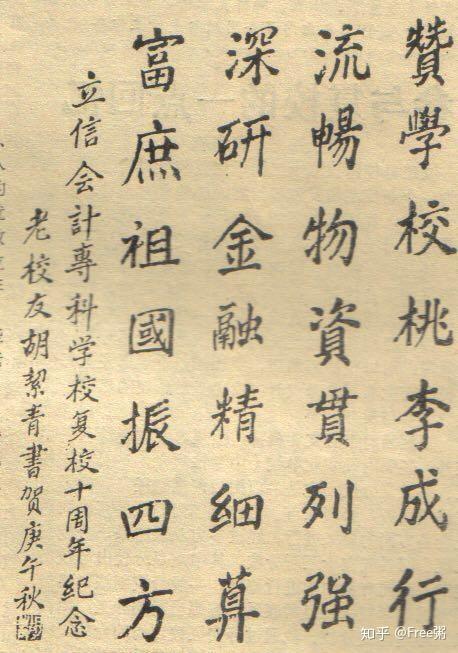 贊學校桃李成行
流暢物資貫列强
深研金融精細算
富庶祖國振四方
立信会計專科学校复校十周年紀念
老校友胡絜青書賀庚午秋
知乎 @Free粥